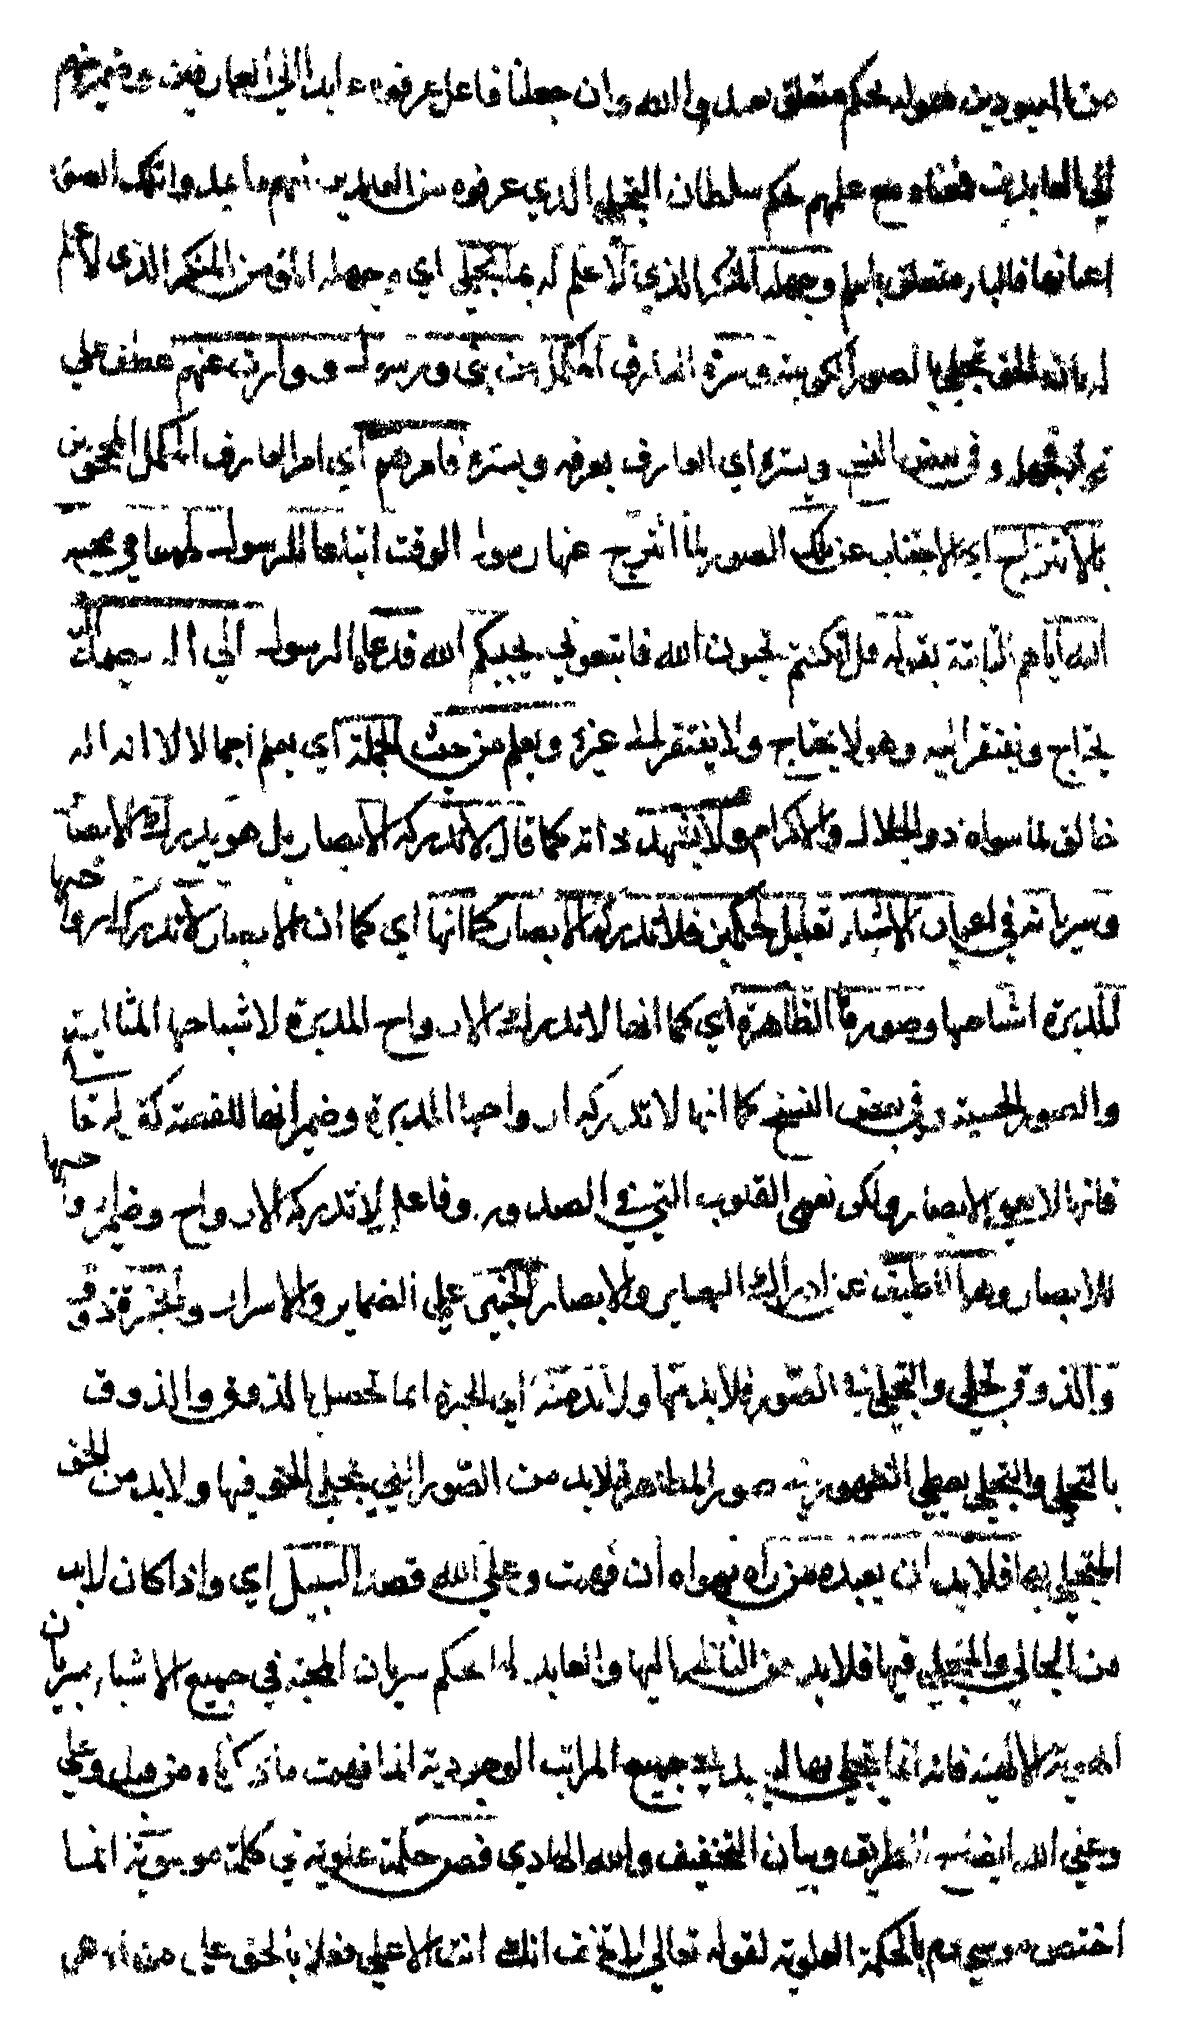 من المعبودين فقوله بحكم متعلق بعبدوا الله وان جعلنا فاعل عرفوه عايدا الى العارفين وضمير منهم
الى العابدين فمعناه مع علمهم بحكم سلطان التجلي الذي عرفوه من العابدين انهم ما عبدوا تلك الصور
اعيانها فالباء متعلق بالعلم وجهله المنكر الذي لا علم له بما يتجلى اي وجهله الحق من المنكر الذي لا علم
له بان الحق يتجلى بالصور الكونية وستره العارف المكمل من نبي ورسول ووارث عنهم عطف على
قوله فجهله وفي بعض النسخ ويستره اي العارف يعرفه ويستره فامرهم اي امر العارف المكمل المحجوبين
بالانتزاح اي الاجتناب عن تلك الصور لما انتزح عنها رسول الوقت اتباعا للرسول طمعا في محبة
الله اياهم الثابتة بقوله قل ان كنتم تحبون الله فاتبعوني يحببكم الله فدعا الرسول الى اله يصمد اليه
يحتاج ويفتقر اليه وهو لا يحتاج ولا يفتقر الى غيره ويعلم من حيث الجملة اي يعلم اجمالا لا انه اله
خالق لما سواه ذو الجلال والاكرام ولا يشهد ذاته كما قال لا تدركه الابصار بل هو يدرك الابصار
وسريانه في اعيان الاشياء تعليل لحكمين فلا تدركه الابصار كما انها اي كما ان الابصار لا تدرك ارواحها
المدبرة اشباحها وصورها الظاهرة اي كما انها لا تدرك الارواح المدبرة لاشباحها المثالية
والصور الحسية وفي بعض النسخ كما انها لا تدركه ارواحها المدبرة وضمير انها للقصة كقوله فا
فانها لا تعمى الابصار ولكن تعمى القلوب التي في الصدور وفاعل لا تدركه الارواح وضمير ارواحها
للابصار وهو اللطيف عن ادراك البصاير والابصار الخبير على الضماير والاسرار والخبرة ذوق
والذوق تجلي والتجلي في الصور فلا بد منها ولا بد منه اي الخبرة انما تحصل بالذوق والذوق
بالتجلي والتجلي يعطي الظهور في صور المظاهر فلا بد من الصور التي يتجلى الحق فيها ولا بد من الحق
المتجلي بها فلا بد ان يعبده من راه بهواه ان فهمت وعلى الله قصد السبيل اي واذا كان لا بد
من المجالي والمتجلي فيها فلا بد من الناظر اليها والعابد لها بحكم سريان المحبة في جميع الاشياء بسريان
الهوية الالهية فانه انما يتجلى بها اليه في جميع المراتب الوجودية انما فهمت ما ذكرناه من قبل وعلى
وعلى الله ايضاح الطريق وبيان التحقيق والله الهادي فص حكمة علوية في كلمة موسوية انما
اختص موسى عم بالحكمة العلوية لقوله تعالى لا تخف انك انت الاعلى فعلا بالحق على من ادعى